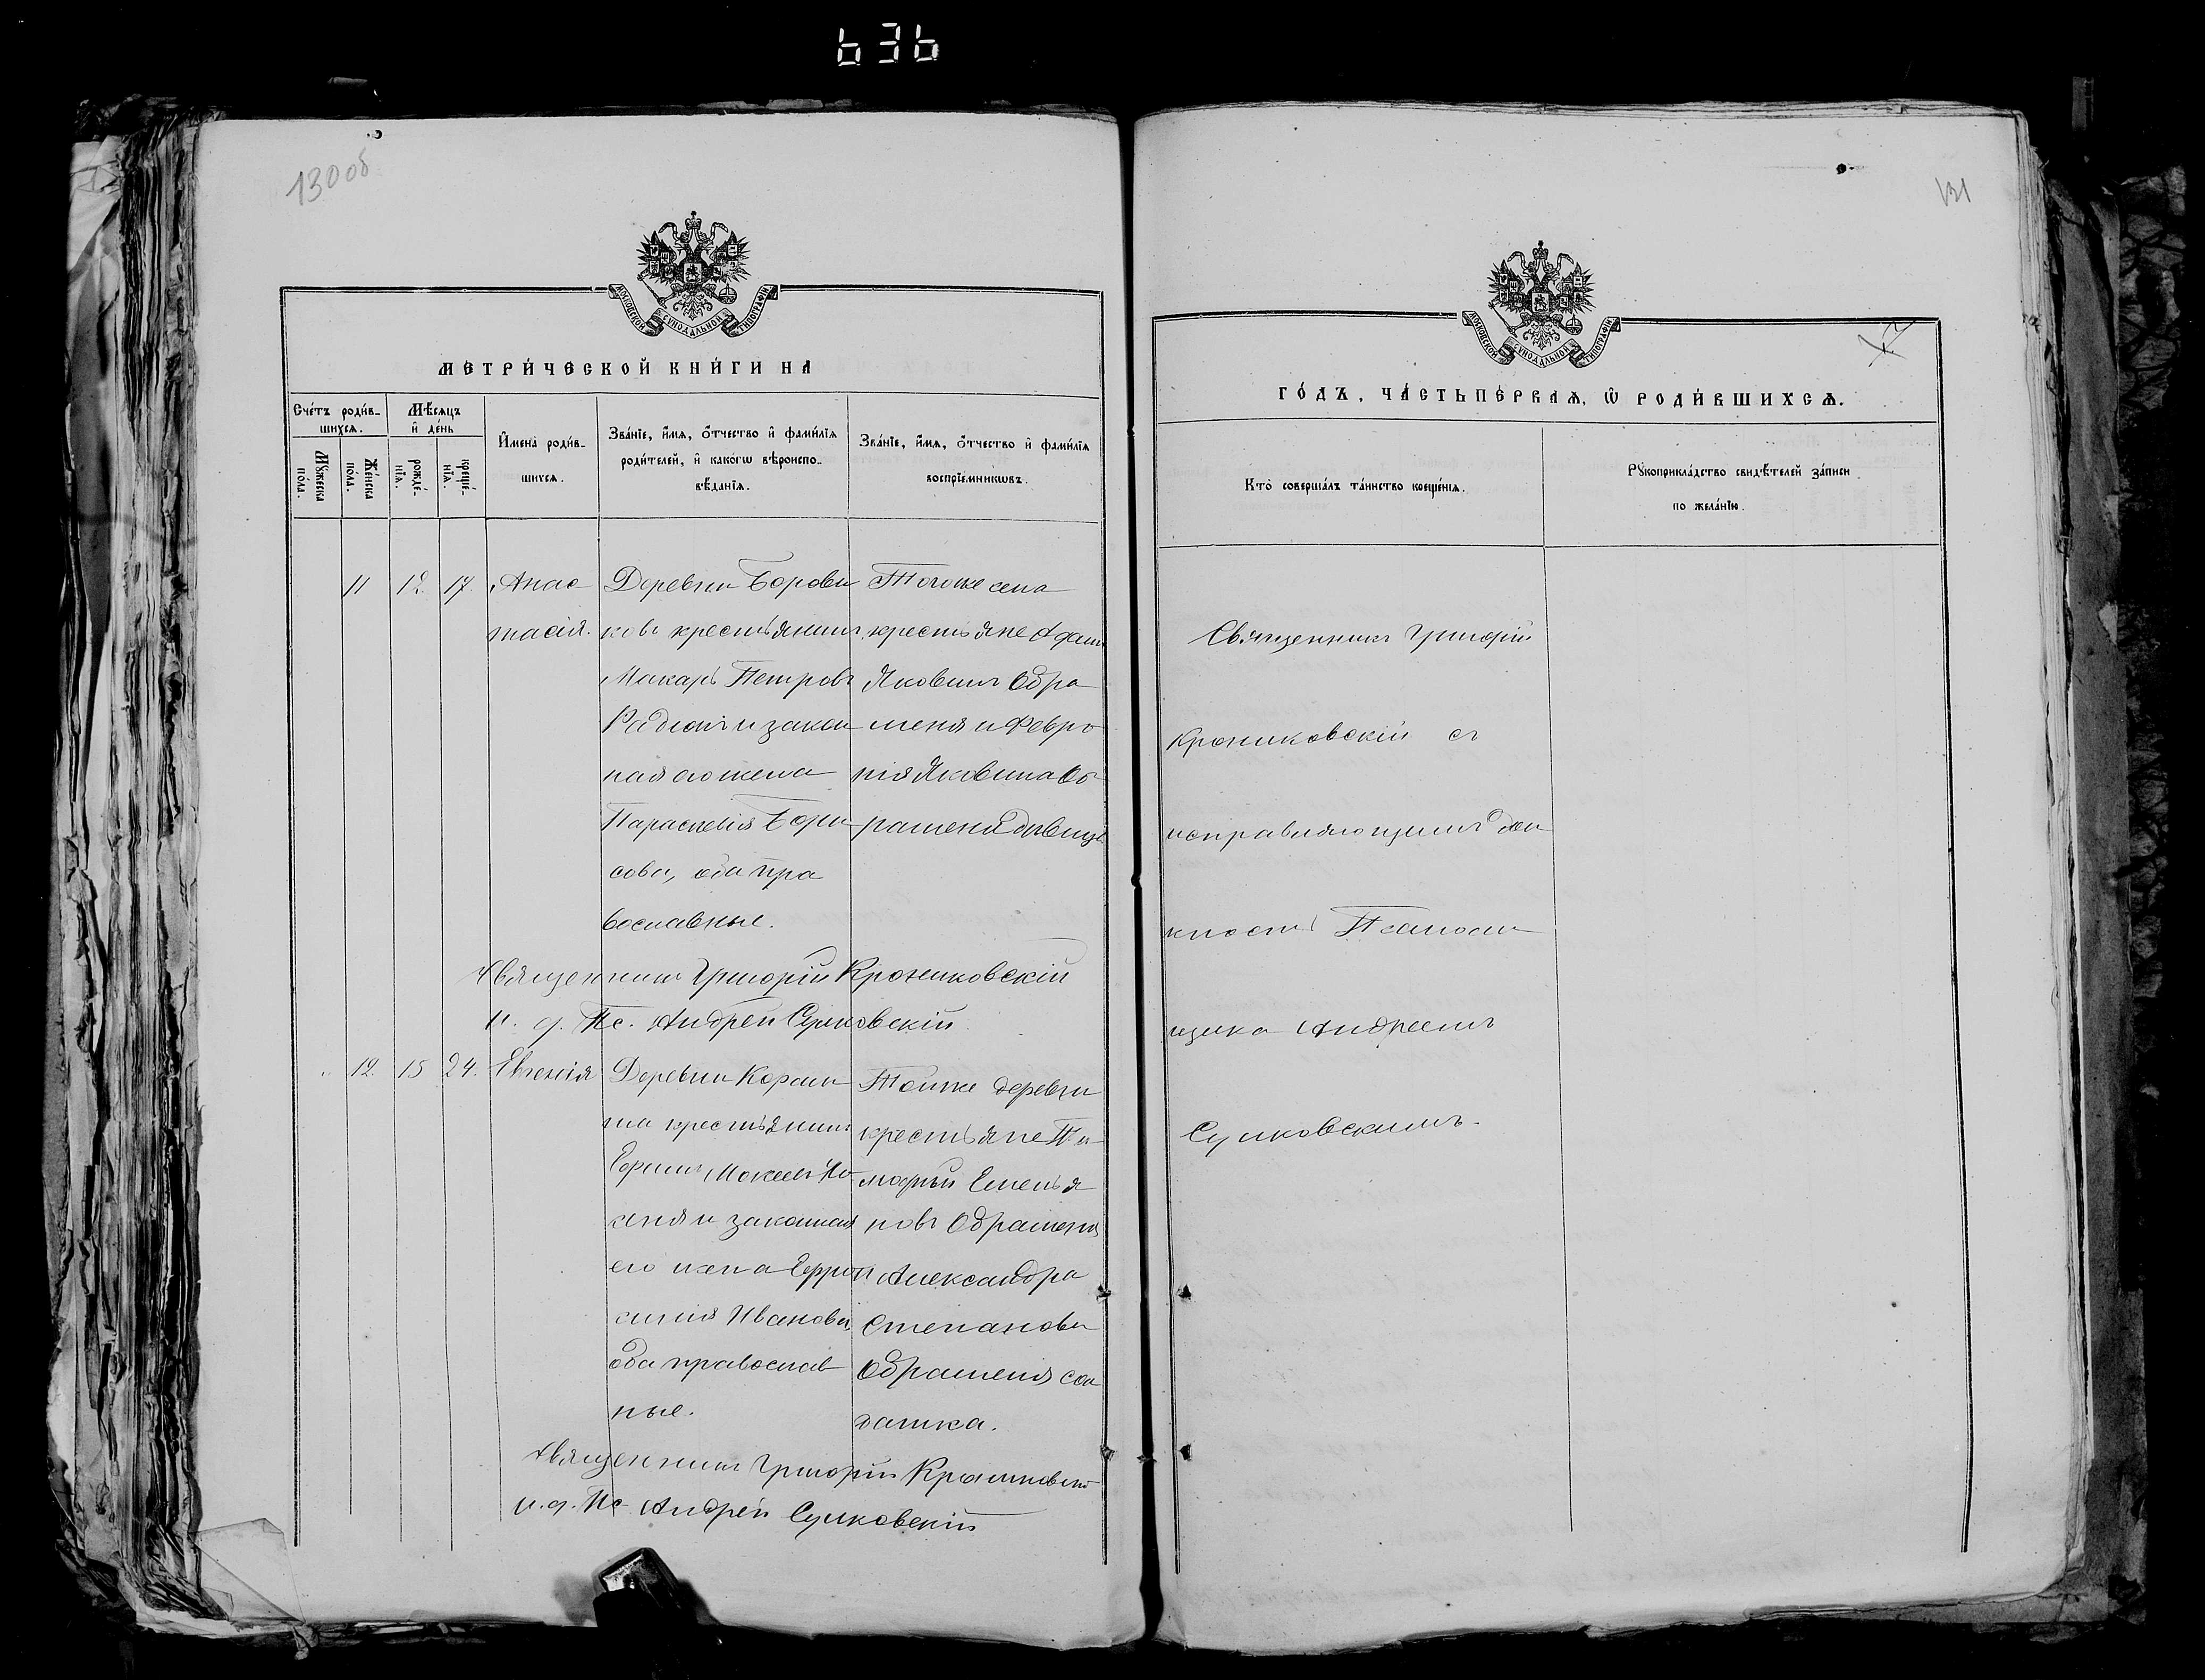 636
130 об
131
МОСКОВСКОЙ СѴНОДАЛЬНОЙ ТИПОГРАФІИ
МЕТРИ́ЧЕСКОЙ КНИ́ГИ НА
Сче́тъ роди́в-
шихсѧ.
Мѣ́сѧцъ
и҆ де́нь
Мꙋ́жеска
по́ла.
Же́нска
по́ла.
рожде́-
нїѧ.
креще́-
нїѧ.
И҆мена̀ роди́в-
шихсѧ.
Зва́нїе, и҆́мѧ, ѻ҆́тчество и҆ фами́лїѧ
роди́телей, и҆ како́гѡ вѣроиспо-
вѣ́данїѧ.
Зва́нїе, и҆́мѧ, ѻ҆́тчество и҆ фами́лїѧ
воспрїе́мникѡвъ.
11
12.
17.
Анас-
тасія.
Деревни Борови
ковъ крестьянинъ
Макаръ Петровъ
и закон
ная его жена
Параскевія Бори
сова, оба пра
вославные.
Тогоже села
крестьяне Адамъ
Яковлевъ Обра
меня и Февро
нія Яковлева Об
раменя дѣвица.
Священникъ Григорій
и. д. Пс. Андрей Сулковскій
12.
15
24.
Евгенія
Деревни
крестьянинъ
Ефимъ Мокеевъ
и законная
его жена Ефро
синія Иванова
оба православ
ные.
Тойже деревни
крестьяне Ти
мофей Емелья
новъ Обраменя
и Александра
Степанова
Обраменя сол
датка.
Священникъ Григорій
и. д. Пс. Андрей Сулковскій
МОСКОВСКОЙ СѴНОДАЛЬНОЙ ТИПОГРАФІИ
ГО́ДЪ, ЧА́СТЬ ПЕ́РВАѦ, Ѡ҆ РОДИ́ВШИХСѦ.
Кто̀ соверша́лъ та́инство креще́нїѧ.
Рꙋкоприкла́дство свидѣ́телей за́писи
по жела́нїю.
Священникъ Григорій
съ
исправляющимъ дол
жность Псалом
щика Андреемъ
Сулковскимъ.